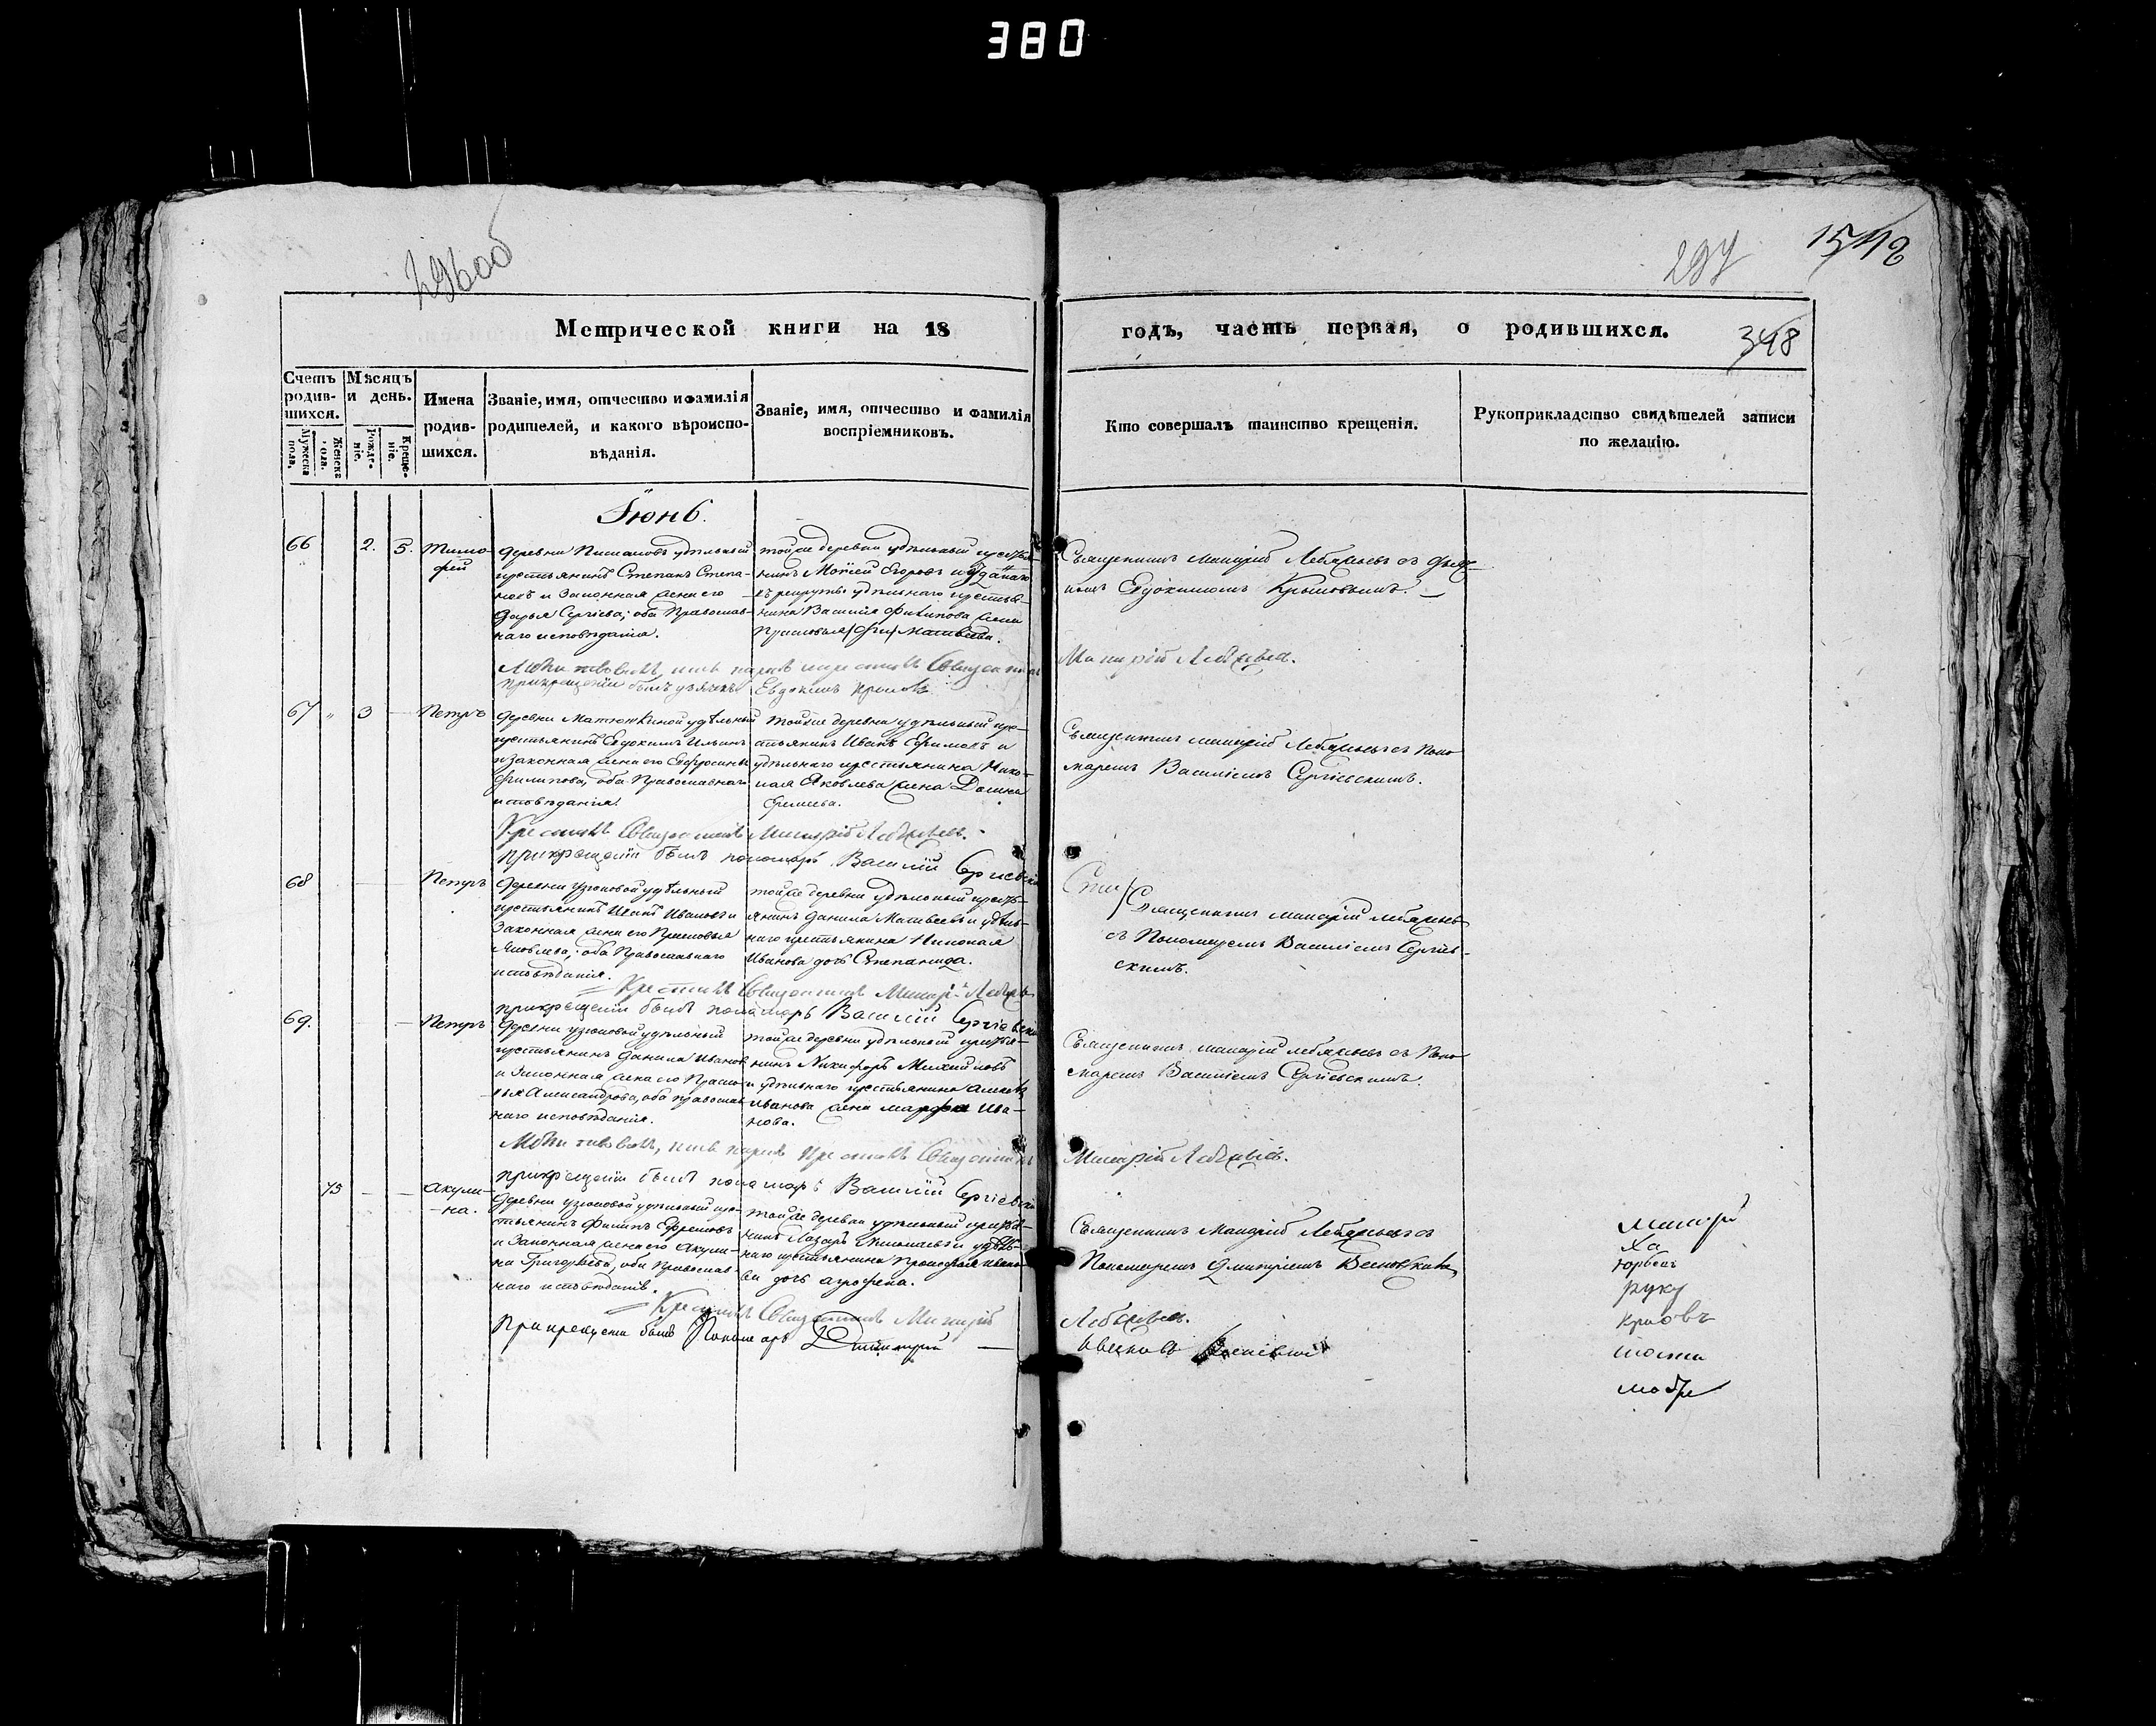 380
296об
297
1542
348
Метрической книги на 18
годъ, часть первая, о родившихся.
Счетъ родив-
шихся.
Мужеска пола.
Женска пола.
Мѣсяцъ
и день.
Рожде-
ніе.
Креще-
ніе.
Имена
родив-
шихся.
Званіе, имя, отчество и фамилія
родителей, и какого вѣроиспо-
вѣданія.
Званіе, имя, отчество и фамилія
воспріемниковъ.
Кто совершалъ таинство крещенія.
Рукоприкладство свидѣтелей записи
по желанію.
Іюнь.
66
2. 5.
Тимо-
фей
деревни удѣльный
крестьянинъ Степанъ Степа-
новъ и законная жена его
Дарья Сергіева; оба Православ-
наго исповѣданія.
тойже деревни удѣльный крестья-
нинъ Моѵсей Егоровъ и отданаго
въ рекруты удѣльнаго крестья-
нина Василія Филипова жена
Прасковья Матвеева.
Священникъ Макарій Лебяжьевъ съ дьяч-
комъ Евдокимомъ Крыловымъ.
Молитвовалъ, имя нарекъ и крестилъ Священникъ
Макарій Лебяжьев.
при крещеніи былъ дьячекъ Евдокимъ Крылов
67 " 3 —
Петръ
деревни Матюшкиной удѣльный
крестьянинъ Евдокимъ Ильинъ
и законная жена его Евфросинья
Филипова, оба Православнаго
исповѣданія.
тойже деревни удѣльный кре-
стьянинъ Иванъ Ефимовъ и
удѣльнаго крестьянина Нико-
лая Яковлева жена Домна
Священникъ Макарій Лебяжьевъ съ Поно-
маремъ Василіемъ Сергіевскимъ.
Крестилъ Священникъ Макарій Лебяжьев.
при крещеніи былъ пономарь Василій Сергіевскій
68 — —
Петръ
деревни Узюковой удѣльный
крестьянинъ Иванъ Ивановъ и
законная жена его Прасковья
Яковлева; оба Православнаго
исповѣданія.
тойже деревни удѣльный кресть-
янинъ Данила Матвеевъ и удѣль-
наго крестьянина Николая
Иванова дочь Степанида.
Священникъ Макарій Лебяжьевъ
съ Пономаремъ Василіемъ Сергіев-
скимъ.
Крестилъ Священникъ Макарій Лебяжьев
при крещеніи былъ пономарь Василій Сергіевскій
69. —
Петръ
деревни Узюковой удѣльный
крестьянинъ Данила Иванов
и законная жена его Праско-
вья Александрова, оба православ-
наго исповѣданія.
тойже деревни удѣльный крестья-
нинъ Никифоръ Михайловъ
и удѣльнаго крестьянина
Иванова жена Марфа Ива-
нова.
Священникъ Макарій Лебяжьевъ съ Поно-
маремъ Василіемъ Сергіевскимъ.
Молитвовалъ, имя нарекъ крестилъ Священникъ
Макарій Лебяжьев.
при крещеніи былъ пономарь Василій Сергіевскій
75 — —
Акули-
на.
деревни Узюковой удѣльный кре-
стьянинъ Филипъ Ефремовъ
и законная жена его Акули-
на Григорьева, оба Православ-
наго исповѣданія.
тойже деревни удѣльный крестья-
нинъ Лазарь Николаевъ и удѣль-
наго крестьянина
дочь Агрофена.
Священникъ Макарій Лебяжьевъ съ
Пономаремъ Дмитріемъ
Крестилъ Священникъ Макарій
Лебяжьев.
При крещеніи былъ Пономарь Дмитрій —
руку